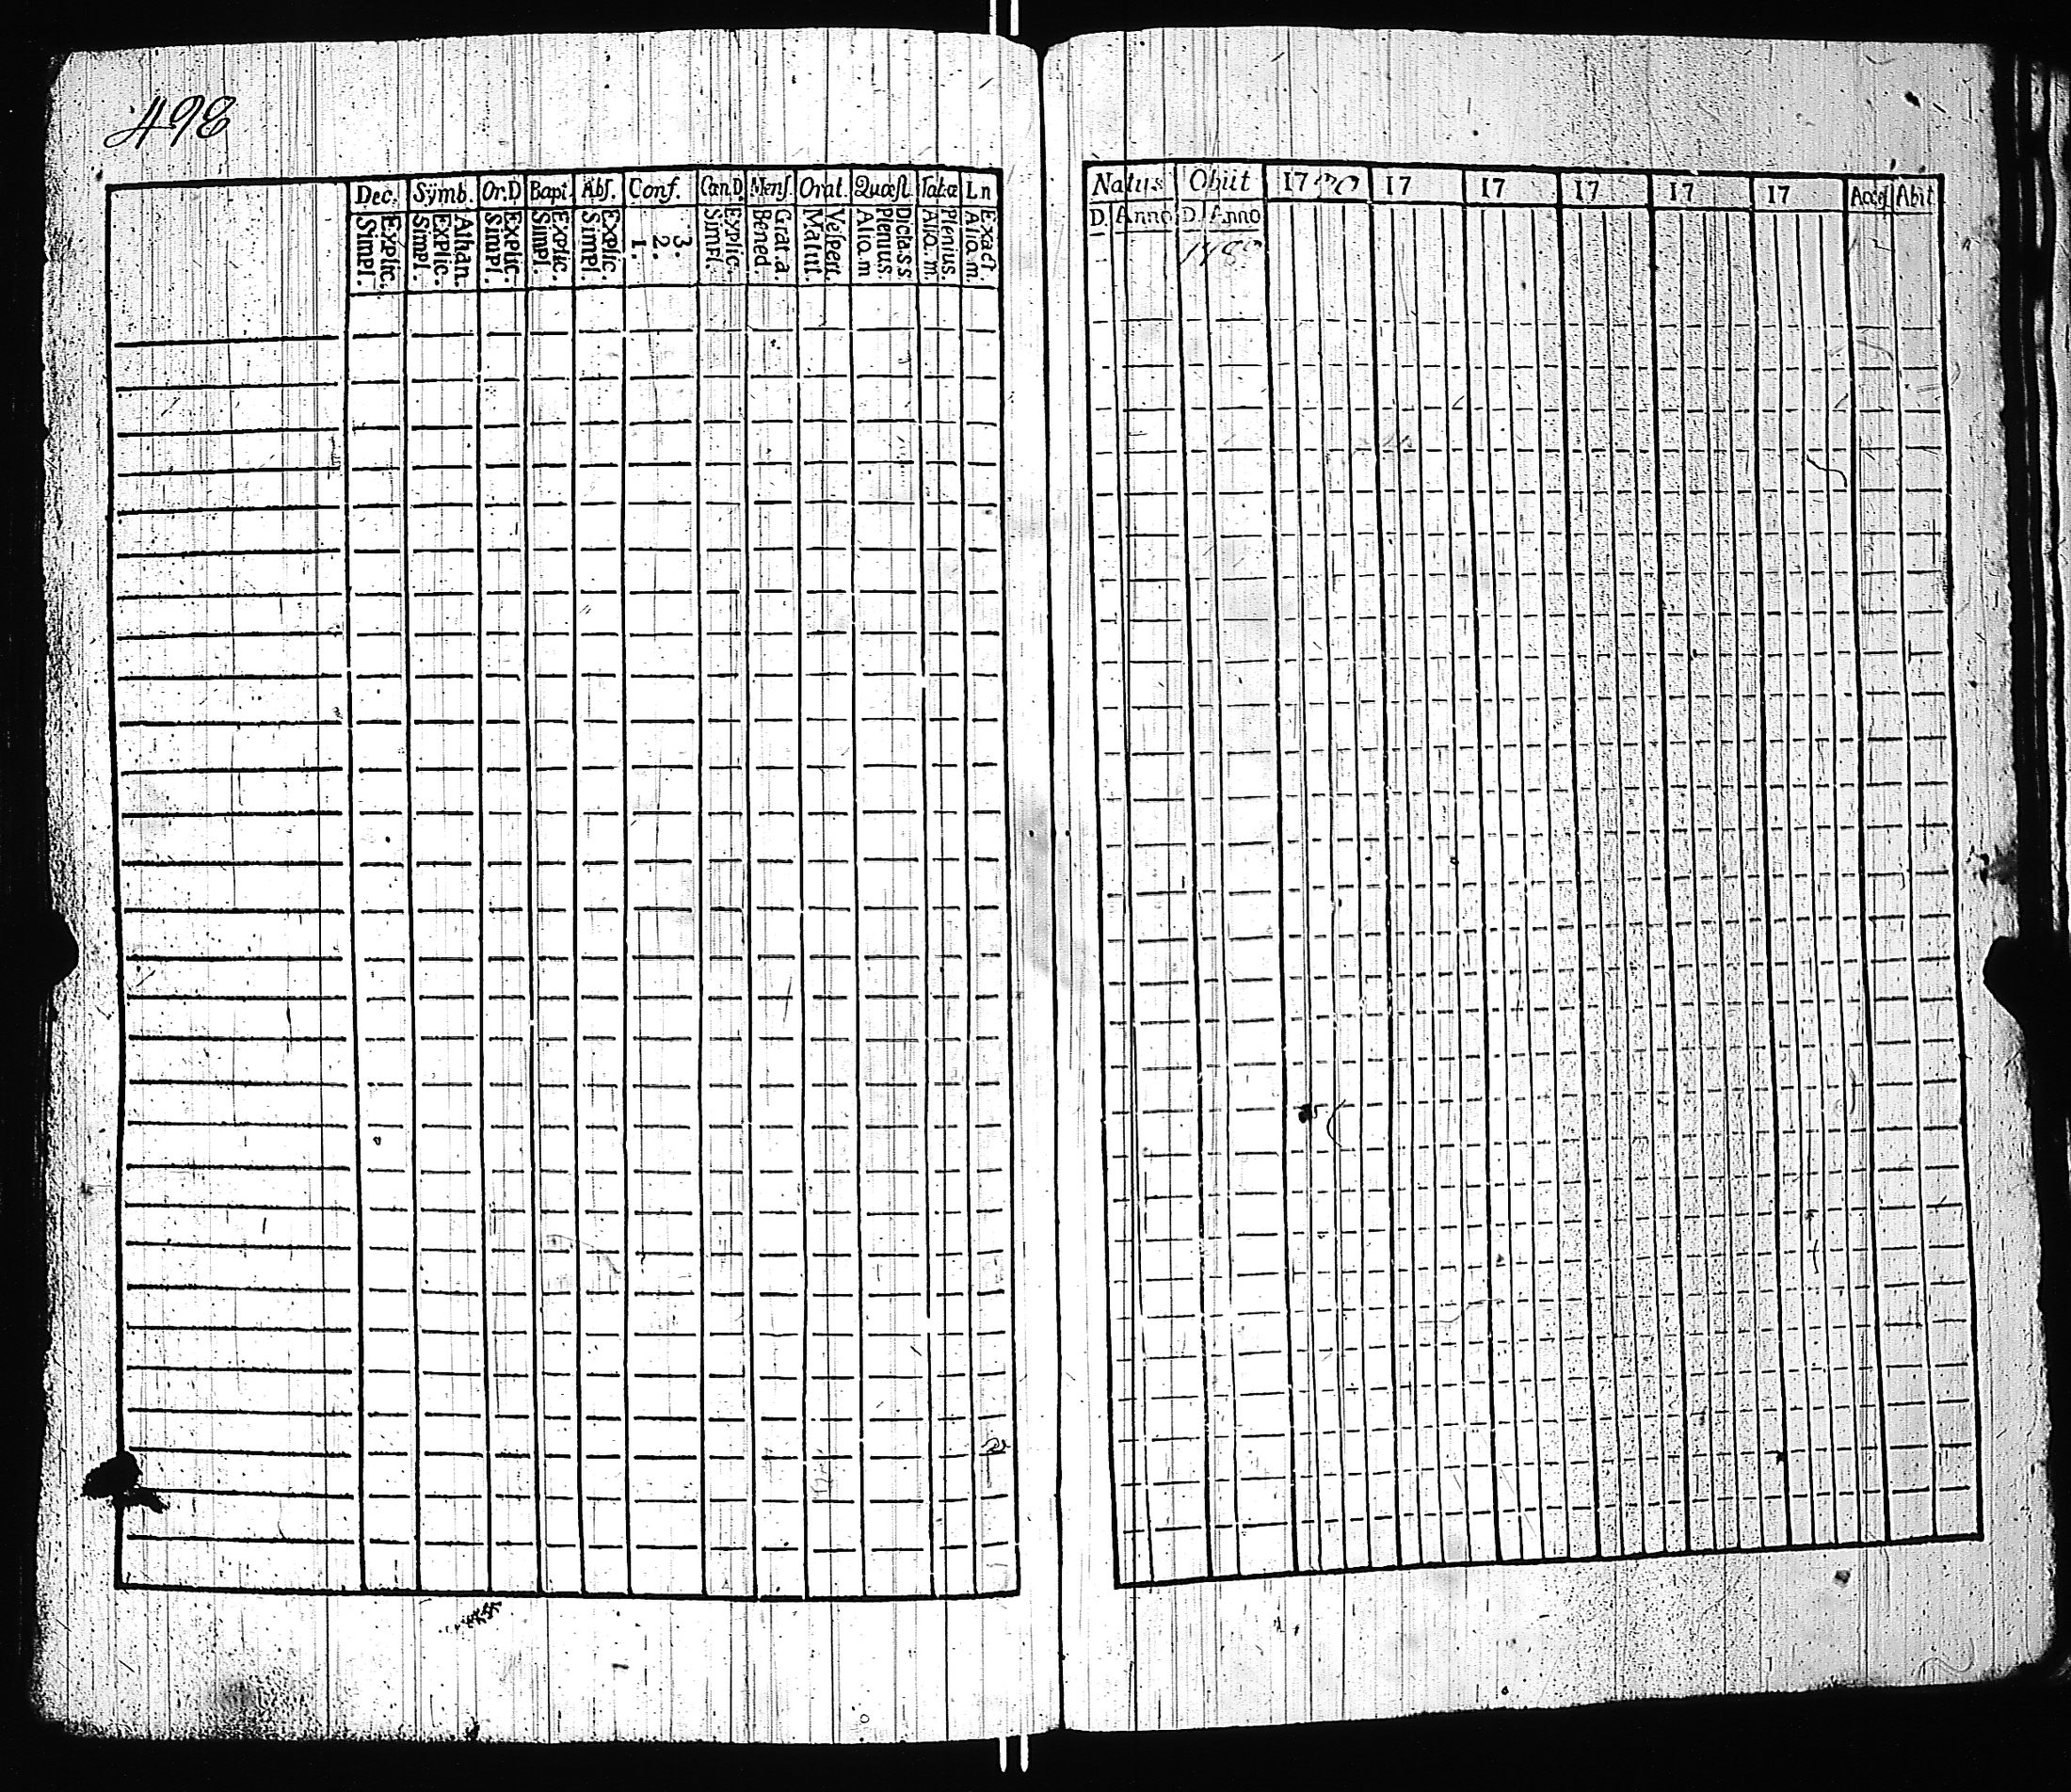 498
Dec. Symb. Or.D Bapt. Abſ. Conf. Can.D. Menſ. Orat. Quæſt Tabæ Ln
Explic. Simpl. Athan. Explic. Simpl. Explic. Simpl. Explic. Simpl. Explic. Simpl. 3. 2. 1. Explic. Simpl. Grat. a. Bened. Veſpert. Matut. Dicta.s.s. Plenius. Alio.m Plenius. Alio.m. Exact. Alio.m.
Natus Obiit 17 17 17 17 17 17 Acceſ Abit
D. Anno D. Anno